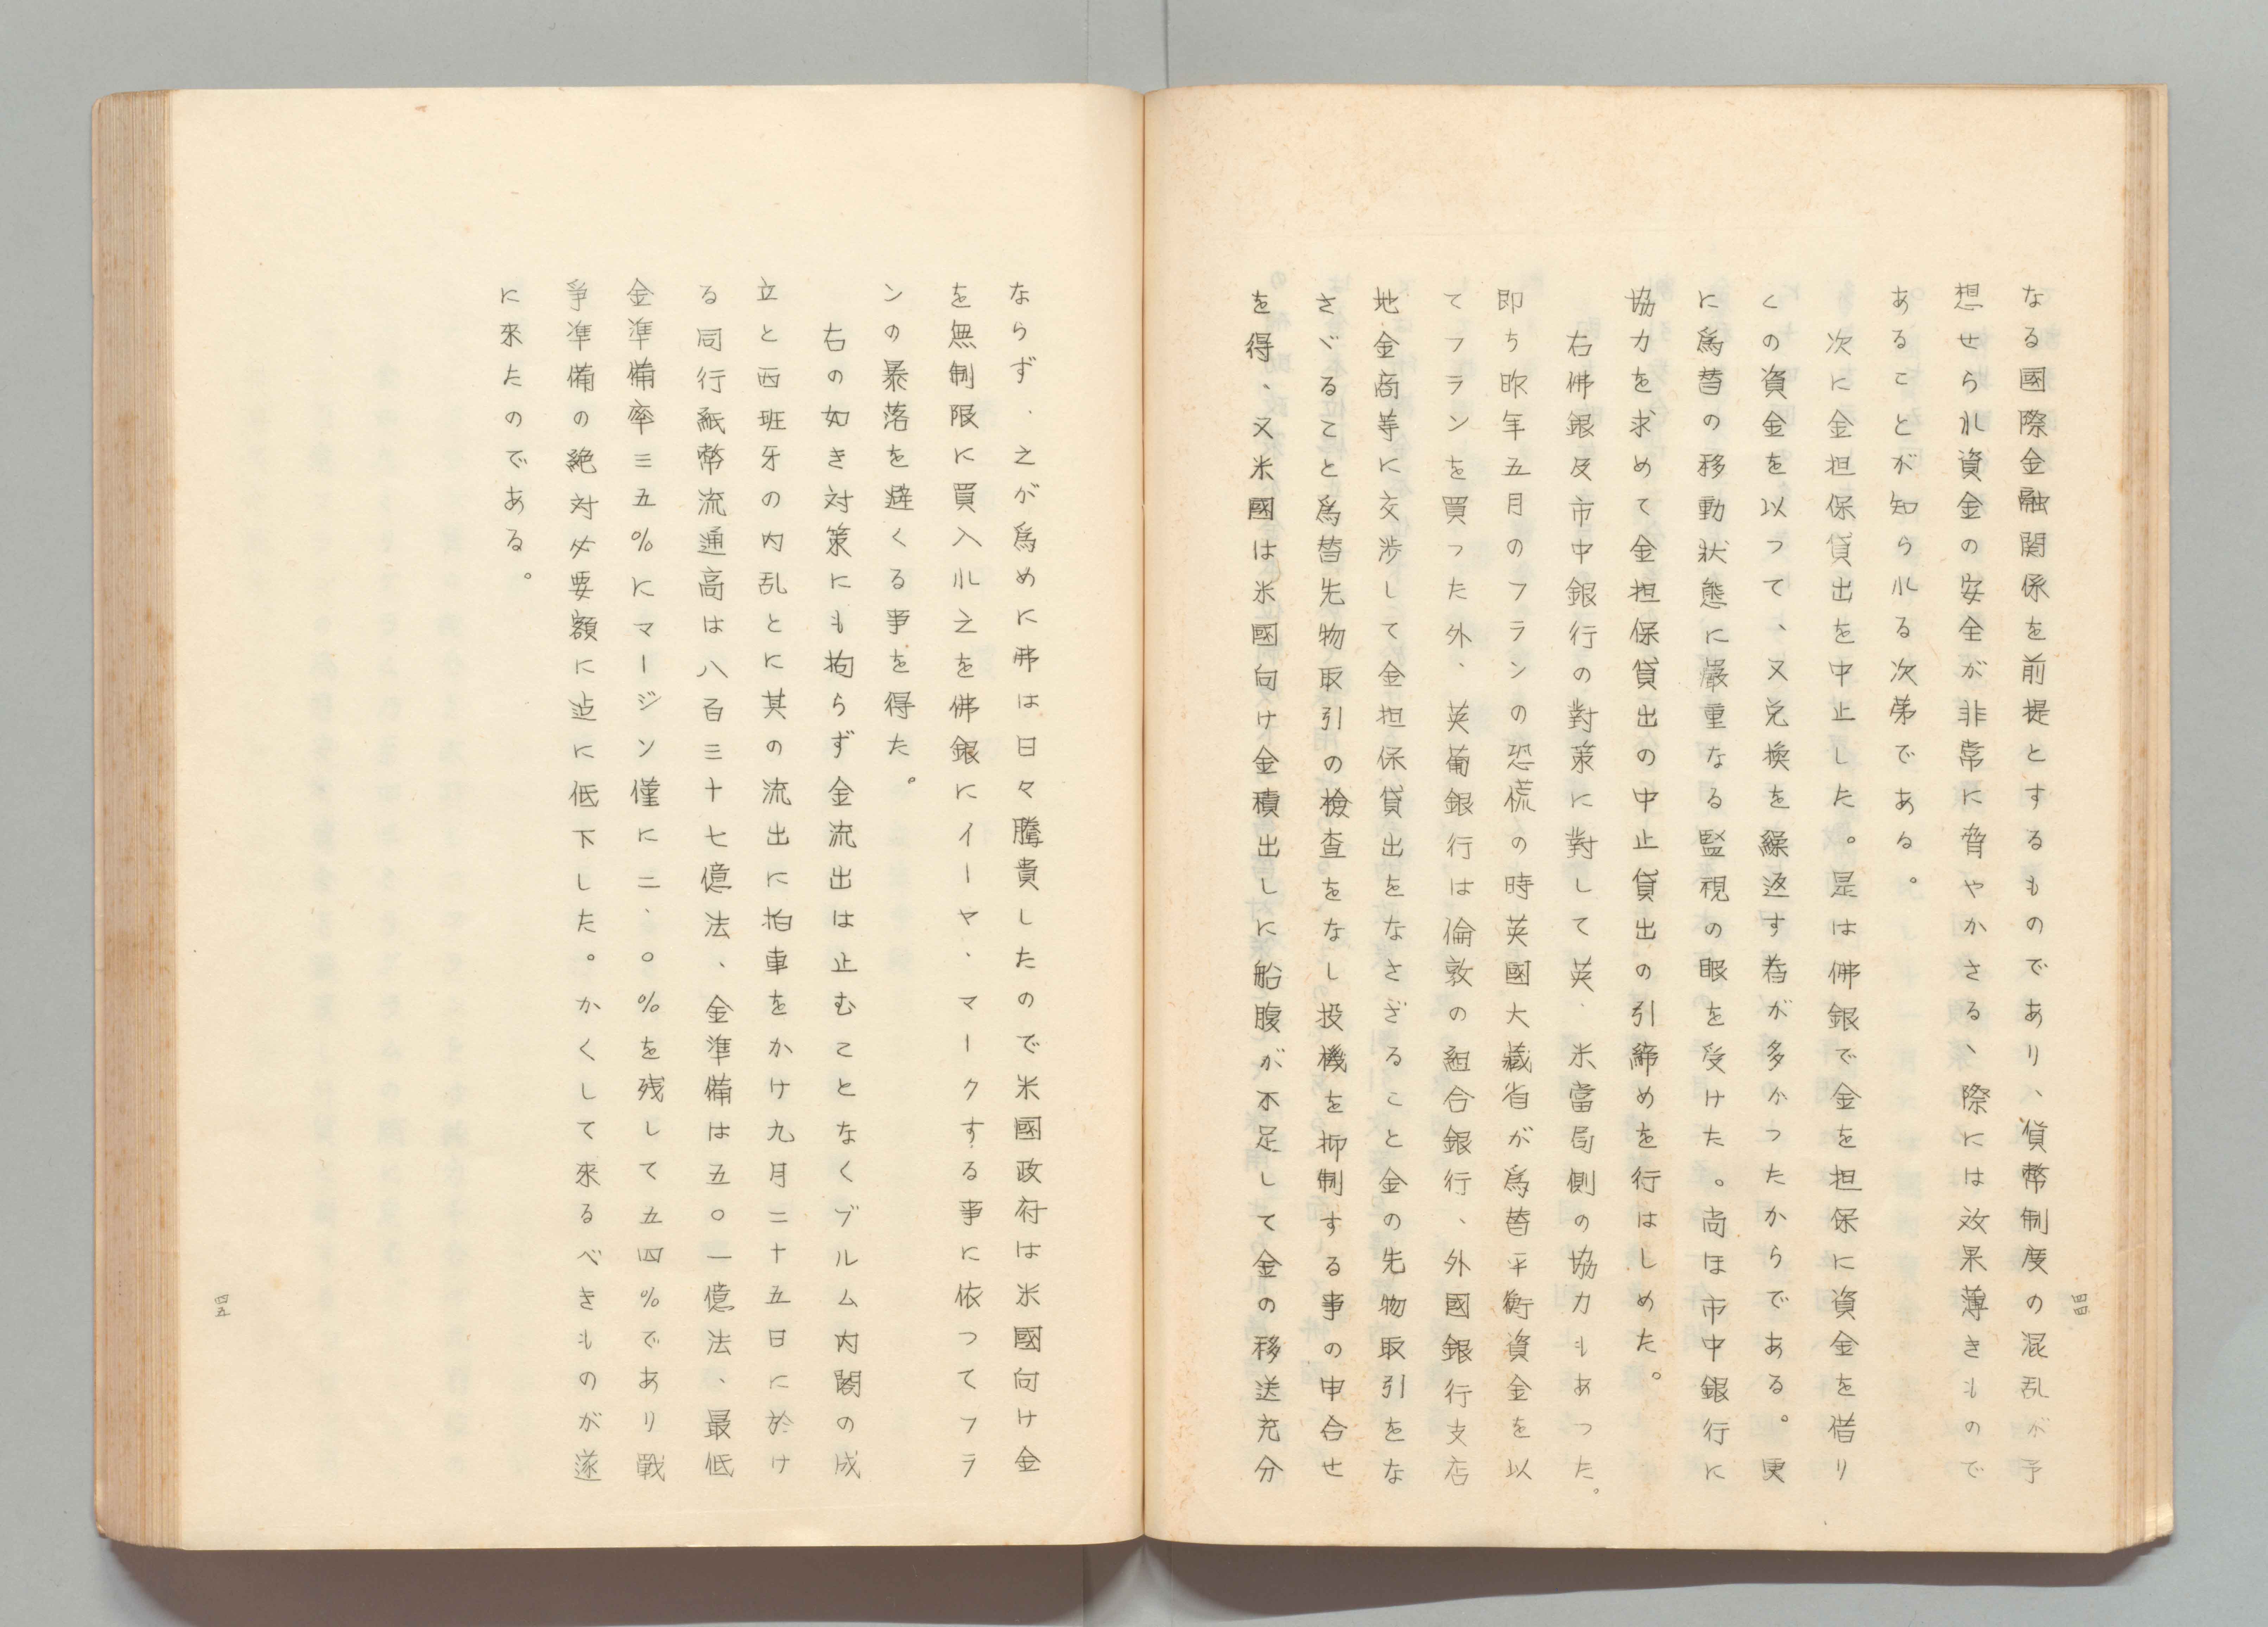 なる國際金融関係を前提とするものであり、貨幣制度の混乱が予
想せられ資金の安全が非常に脅やかさるヽ際には效果薄きもので
あることが知られる次第である。
次に金担保貸出を中止した。是は佛銀で金を担保に資金を借り
この資金を以つて、又兌換を繰返す者が多かつたからである。更
に爲替の移動狀態に嚴重なる監視の眼を受けた。尚ほ市中銀行に
協力を求めて金担保貸出の中止貸出の引締めを行はしめた。
右佛銀及市中銀行の對策に對して英、米當局側の協力もあつた。
即ち昨年五月のフランの恐慌の時英國大藏省が爲替平衡資金を以
てフランを買つた外、英蘭銀行は倫敦の組合銀行、外國銀行支店
地金商等に交渉して金担保貸出をなさざること金の先物取引をな
さヾること爲替先物取引の檢査をなし投機を抑制する事の申合せ
を得、又米國は米國向け金積出しに船腹が不足して金の移送充分
四四
ならず、之が爲めに弗は日々騰貴したので米國政府は米國向け金
を無制限に買入れ之を佛銀にイーヤ、マークする事に依つてフラ
ンの暴落を避くる事を得た。
右の如き対策にも拘らず金流出は止むことなくブルム内閣の成
立と西班牙の内乱とに其の流出に拍車をかけ九月二十五日に於け
る同行紙幣流通高は八百三十七億法、金準備は五〇一億法、最低
金準備率三五%にマージン僅に二、〇%を残して五四%であり戰
爭準備の絶対必要額に迠に低下した。かくして來るべきものが遂
に來たのである。
四五